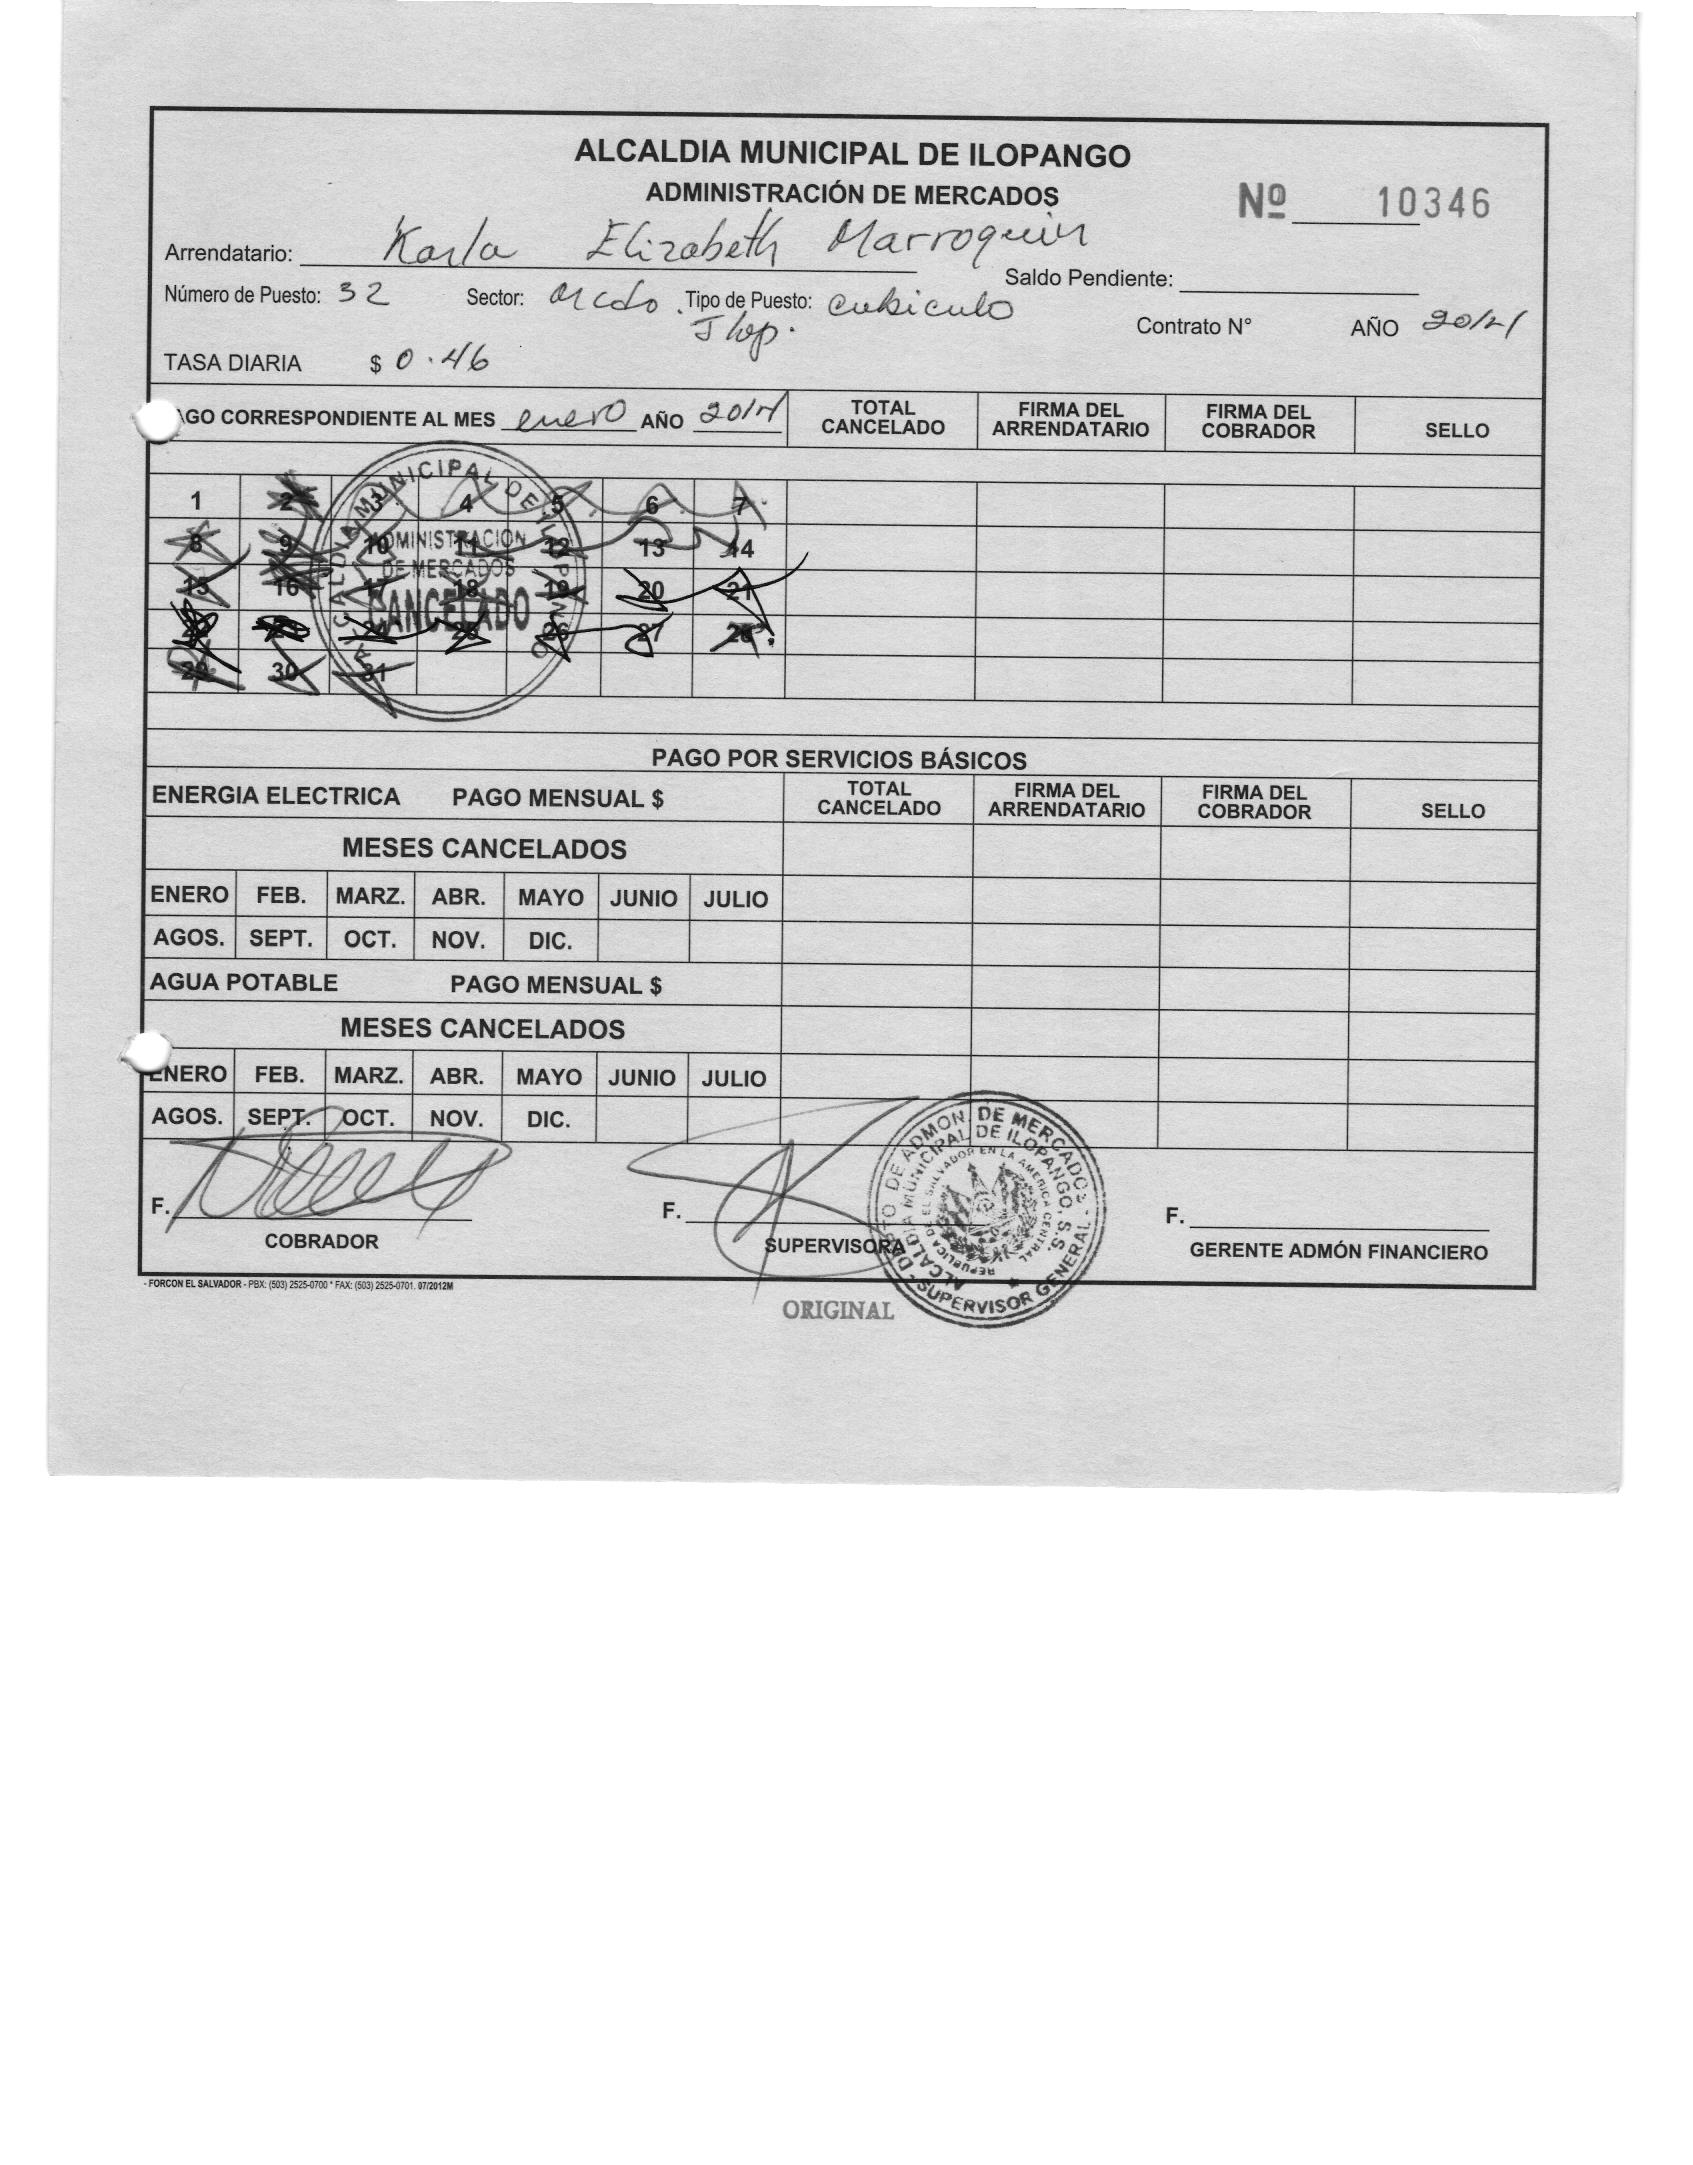 ALCALDIA MUNICIPAL DE ILOPANGO
ADMINISTRACIÓN DE MERCADOS
Nº 10346
Arrendatario: Karla Elizabeth Marroquin
Saldo Pendiente:
Número de Puesto: 32 Sector: Mcdo. Ilop. Tipo de Puesto: cubiculo
Contrato N° AÑO
TASA DIARIA $ 0.46
AGO CORRESPONDIENTE AL MES enero AÑO 2014 TOTAL CANCELADO FIRMA DEL ARRENDATARIO FIRMA DEL COBRADOR SELLO
1 2 3 4 5 6 7
8 9 10 11 12 13 14
15 16 17 18 19 20 21
22 23 24 25 26 27 28
29 30 31
ALCALDIA MUNICIPAL DE ILOPANGO
ADMINISTRACION
DE MERCADOS
CANCELADO
PAGO POR SERVICIOS BÁSICOS
ENERGIA ELECTRICA PAGO MENSUAL $ TOTAL CANCELADO FIRMA DEL ARRENDATARIO FIRMA DEL COBRADOR SELLO
MESES CANCELADOS
ENERO FEB. MARZ. ABR. MAYO JUNIO JULIO
AGOS. SEPT. OCT. NOV. DIC.
AGUA POTABLE PAGO MENSUAL $
MESES CANCELADOS
ENERO FEB. MARZ. ABR. MAYO JUNIO JULIO
AGOS. SEPT. OCT. NOV. DIC.
F. F. F.
COBRADOR SUPERVISORA GERENTE ADMÓN FINANCIERO
DPTO DE ADMON. DE MERCADOS -
ALCALDIA MUNICIPAL DE ILOPANGO, S S
REPUBLICA DE EL SALVADOR EN LA AMERICA CENTRAL
SUPERVISOR GENERAL
- FORCON EL SALVADOR - PBX: (503) 2525-0700 * FAX: (503) 2525-0701. 07/2012M
ORIGINAL